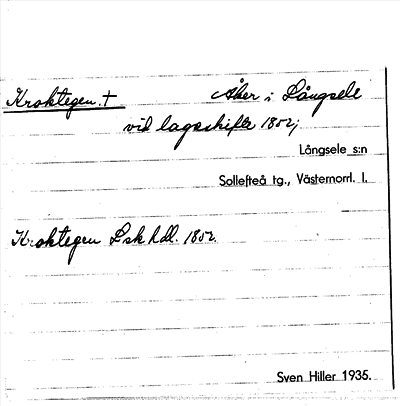 Kroktegen. † Åker i Långsele
vid lagaskifte 1852;
Långsele s:n
Sollefteå tg., Västernorrl. l.
Kroktegen Lsk hdl. 1852.
Sven Hiller 1935.